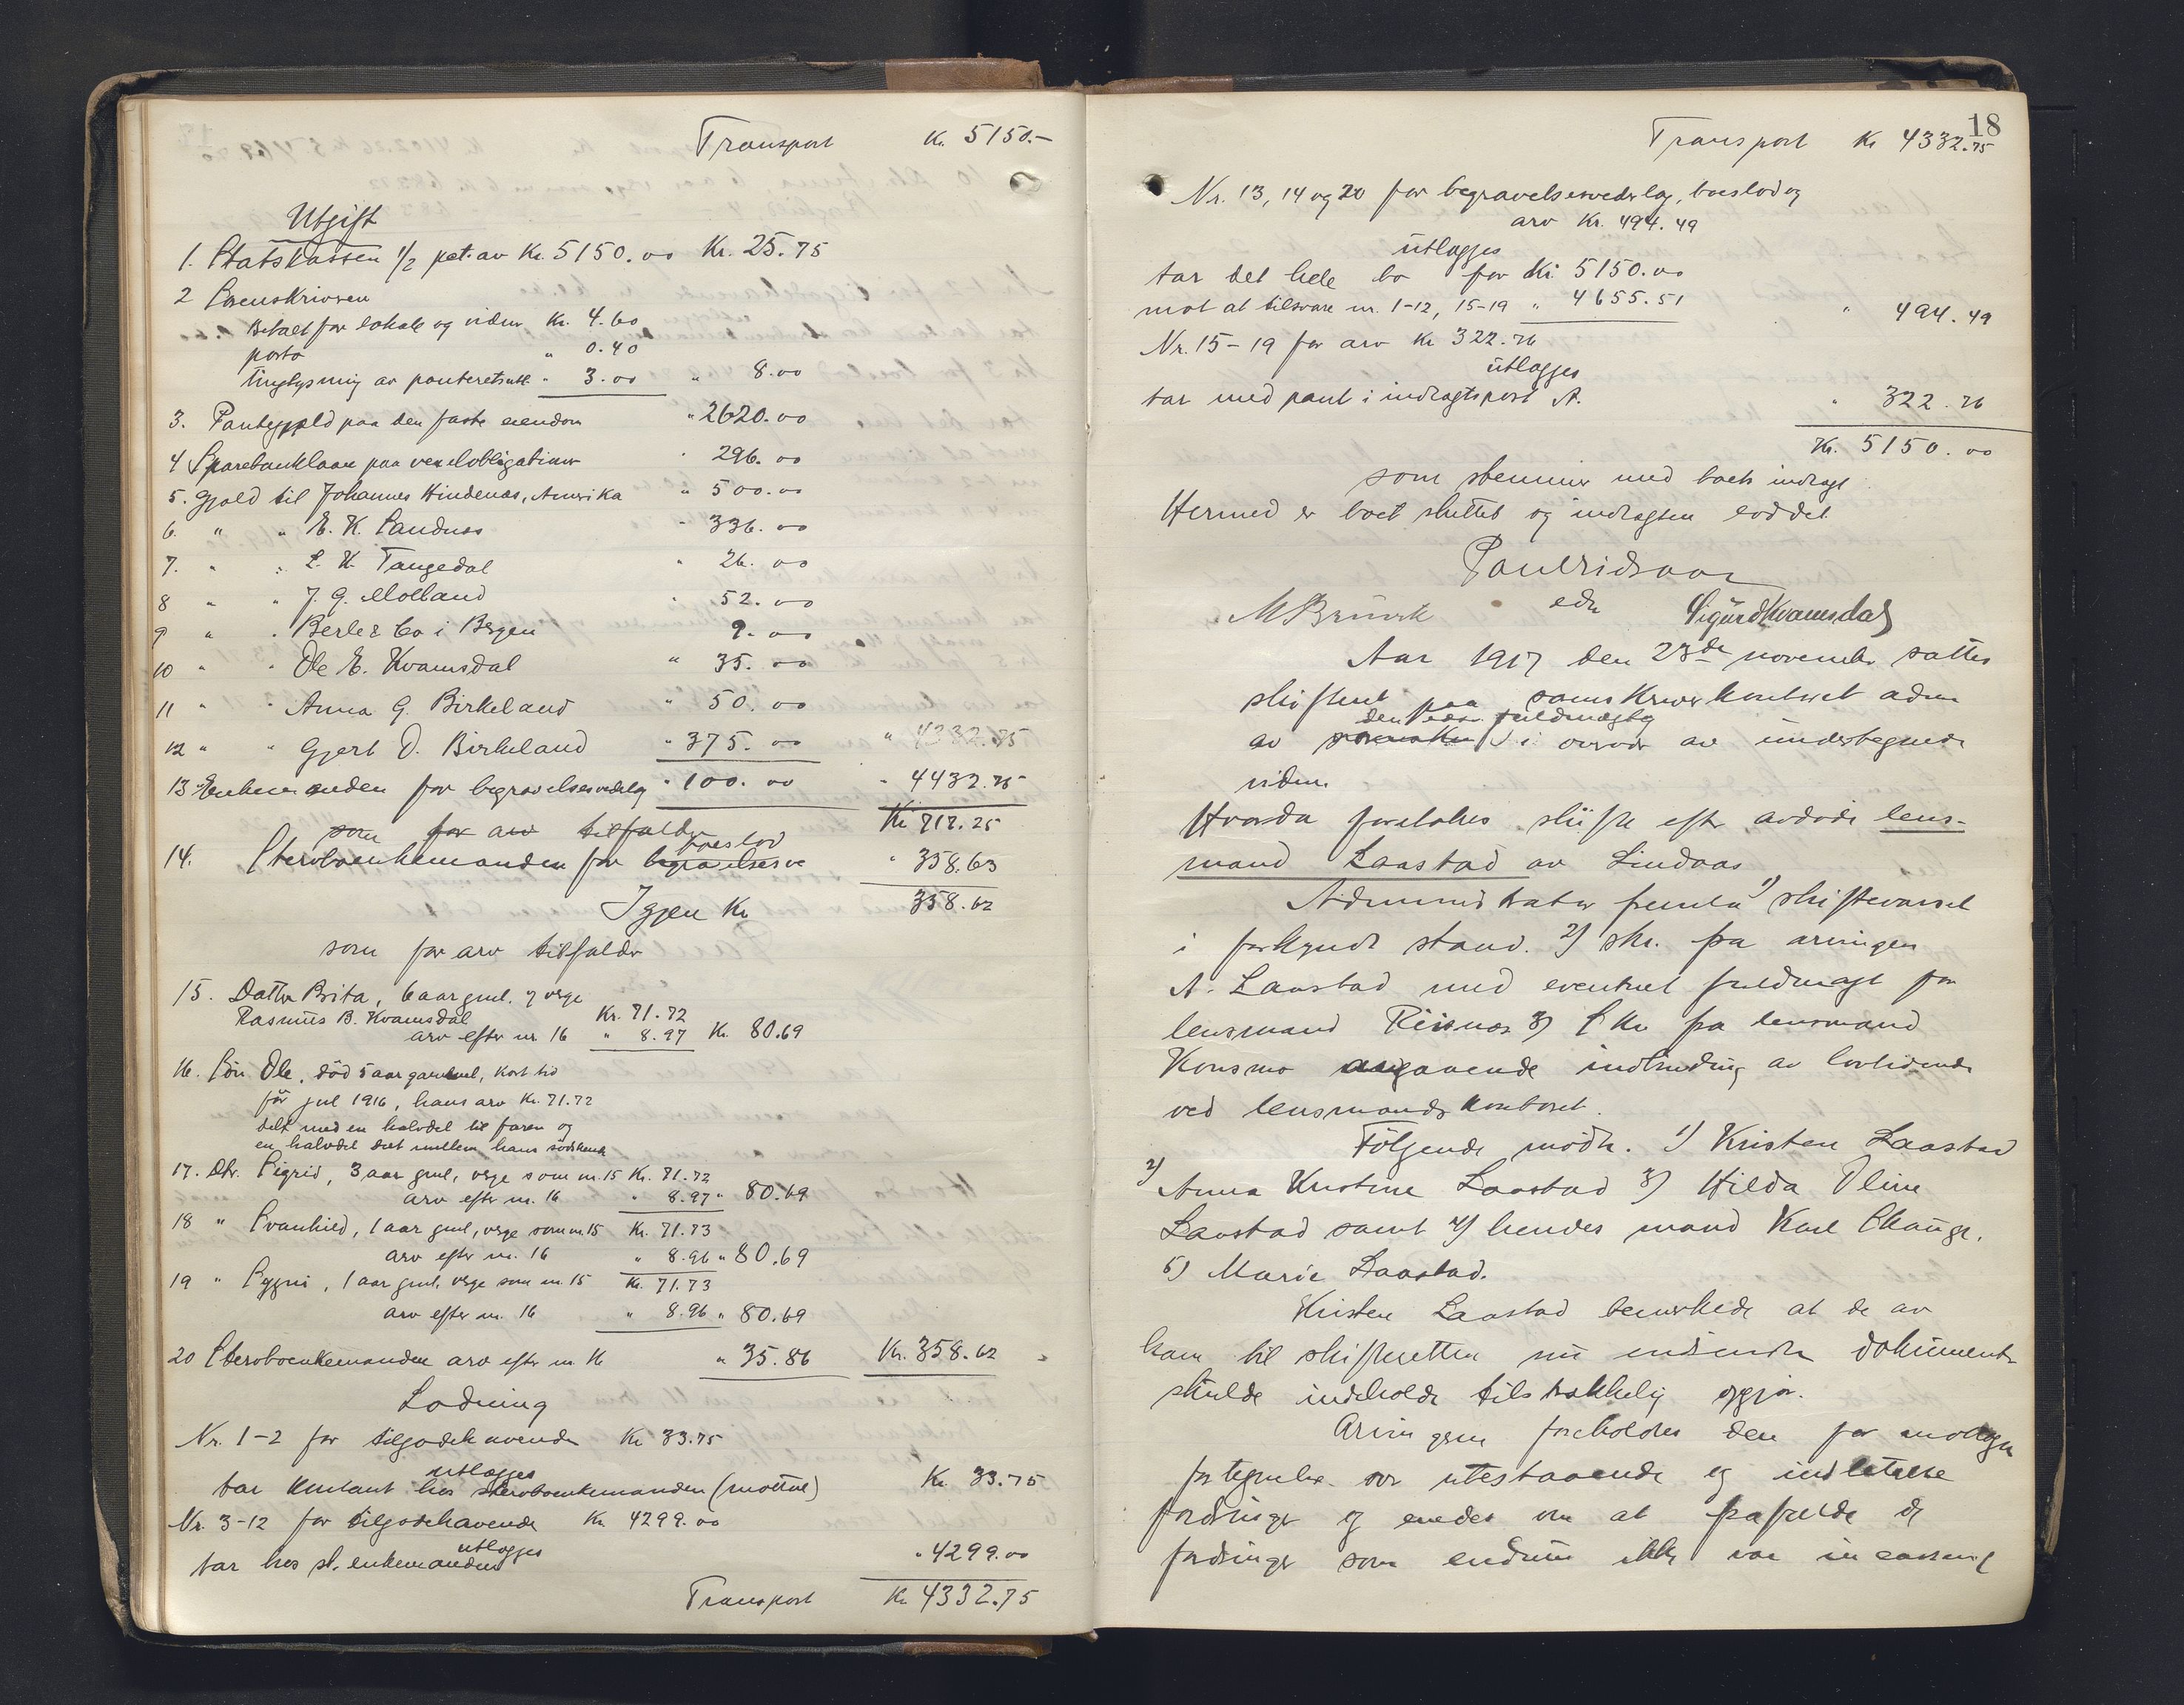 Transport Kr. 5150.-
Utgift
1. Statskassen 1/2 pct. av Kr. 5150.00 Kr. 25.75
2 Sorenskriveren
Betalt for lokale og vidner Kr. 4.60
porto " 0.40
tinglysning av panteretsutl. " 3.00 " 8.00
3. Pantegjæld paa den faste eiendom " 2620.00
4 Sparebanklaan paa vexelobligationer " 296.00
5. Gjæld til Johannes Hindenæs, Amerika " 500.00
6. " " E. K. Sandnæs " 336.00
7. " " L. K. Tangedal " 26.00
8 " " J. G. Molland " 52.00
9 " " Berle & Co i Bergen 9.00
10 " " Ole E. Kvamsdal " 35.00
11 " " Anna G. Birkeland " 50.00
12 " " Gjert O. Birkeland " 375.00 " 4332.75
13 Enkemanden for begravelsesvederlag " 100.00 " 4432.75
som for arv tilfalder Kr. 717.25
14. Stervboenkemanden for begravelsesve boeslod " 358.63
Igjen Kr 358.62
som for arv tilfalder
15. Datter Brita, 6 aar gml. og verge
Rasmus B. Kvamsdal Kr. 71.72
arv efter nr. 16 " 8.97 Kr. 80.69
16. Søn Ole, död 5 aar gammel, kort tid
för jul 1916, hans arv Kr. 71.72
delt med en halvdel til faren og
en halvdel delt mellem hans sødskende
17. Dtr. Sigrid, 3 aar gml, verge som nr. 15 Kr. 71.72
arv efter nr. 16 " 8.97 " 80.69
18 " Svanhild, 1 aar gml, verge som nr. 15 Kr. 71.73
arv efter nr. 16 " 8.96 " 80.69
19 " Sygni, 1 aar gml, verge som nr. 15 Kr. 71.73
arv efter nr. 16 " 8.96 " 80.69
20 Stervboenkemanden arv efter nr. 16 " 35.86 Kr. 358.62
Lodning
Nr. 1-2 for tilgodehavende Kr 33.75
utlægges
tar kontant hos stervboenkemanden (mottat) Kr. 33.75
Nr. 3-12 for tilgodehavende Kr 4299.00
utlægges
tar hos st. enkemanden " 4299.00
Transport Kr 4332.75
18
Transport Kr 4332.75
Nr. 13, 14 og 20 for begravelsesvederlag, boeslod og
arv Kr. 494.49
utlægges
tar det hele bo for Kr. 5150.00
mot at tilsvare nr. 1-12, 15-19 " 4655.51 " 494.49
Nr. 15-19 for arv Kr 322.76
utlægges
tar med pant i indtægtspost A. " 322.76
Kr. 5150.00
som stemmer med boets indtægt
Hermed er boet sluttet og indtægten loddet
Paulridsaar
M Brüvik edv Sigurd Kvamsdal
Aar 1917 den 23de november sattes
skifteret paa sorenskriverkontoret adm
av sorenskr den edsv. fuldmægtig i overvær av undertegnede
vidner
Hvorda foretokes skifte efter avdøde lens-
mand Laastad av Lindaas
Administrator fremla 1) skiftevarsel
i forkyndt stand. 2) skr. fra arvingen
A. Laastad med eventuel fuldmagt for
lensmand Risnæs 3) Skr fra lensmand
Konsmo angaaende indbinding av lovtidende
ved lensmandskontoret.
Følgende mødte. 1) Kristen Laastad
2) Anna Kristine Laastad 3) Hilda Oline
Laastad samt 4) hendes mand Karl Skauge,
5) Marie Laastad.
Kristen Laastad bemerkede at de av
ham til skifteretten nu indsendte dokumenter
skulde indeholde tilstrækkelig opgjør.
Arvingene foreholdtes den for modtagne
fortegnelse over utestaaende og indbetalte
fordringer og enedes om at frafalde de
fordringer som endnu ikke var incassert